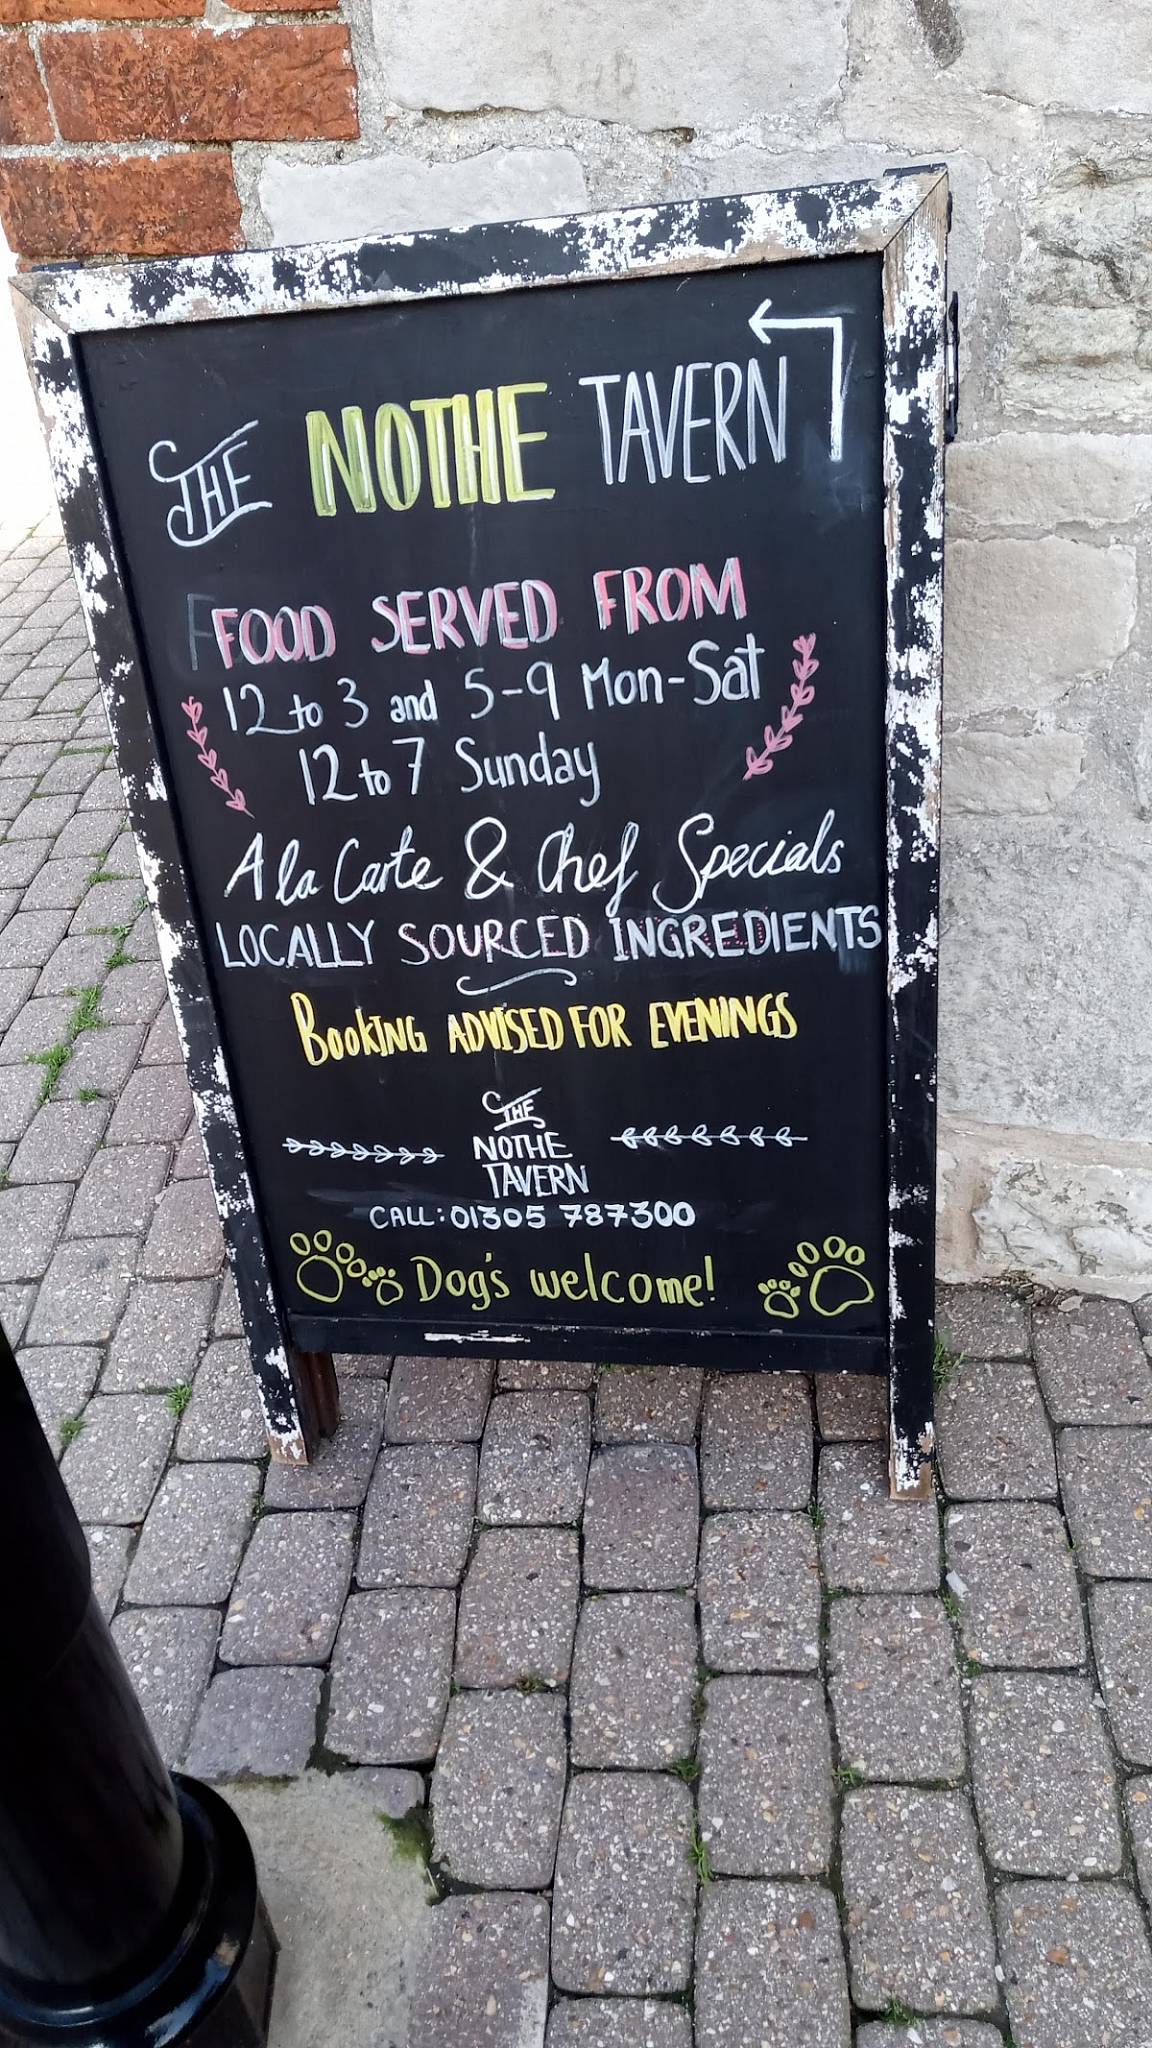 THE NOTHE TAVERN
FOOD SERVED FROM
12 to 3 and 5-9 Mon-Sat
12 to 7 Sunday
A la Carte & Chef Specials
LOCALLY SOURCED INGREDIENTS
BOOKING ADVISED FOR EVENINGS
THE
NOTHE
TAVERN
CALL: 01305 787300
Dog's welcome!